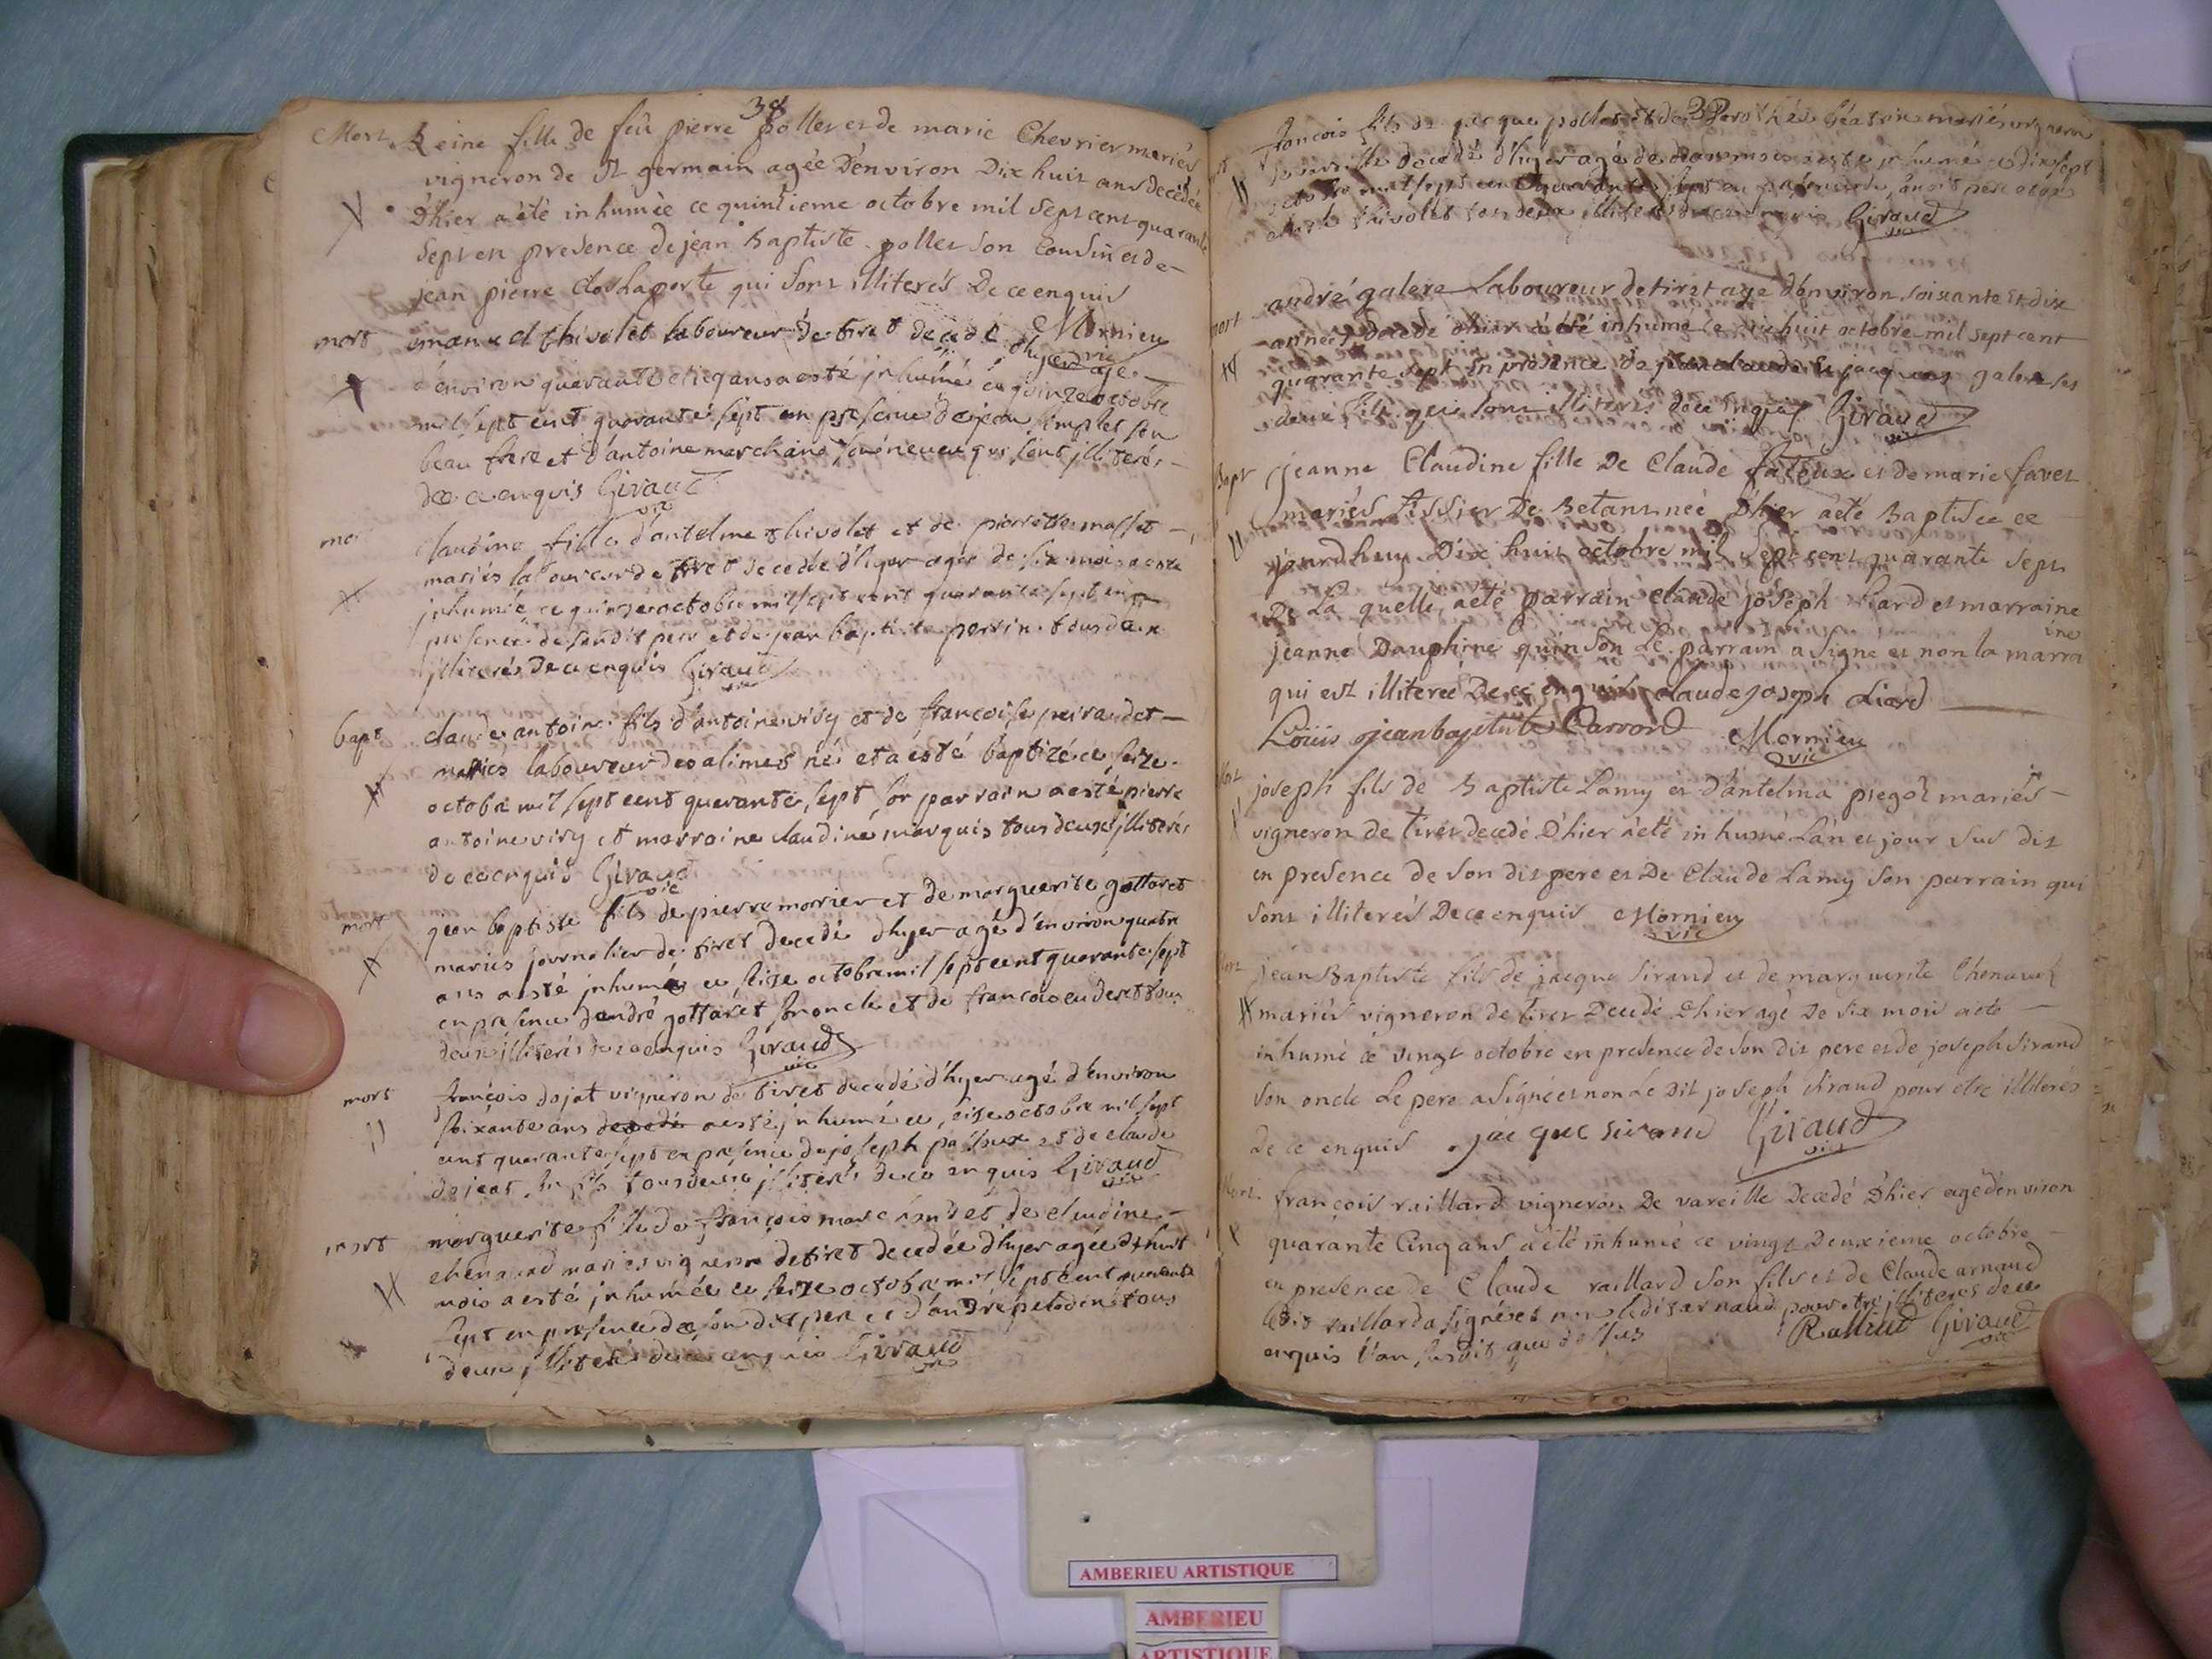 38
Mort Reine fille de feu pierre pollet et de marie Chevrier mariés
vigneron de St germain agée D'environ Dix huit ans decedée
D'hier a été inhumée ce quinsieme octobre mil sept cent quarante
sept en presence de jean Baptiste pollet son Cousin et de
jean pierre de Laporte qui sont illiterés De ce enquis
Mornieu vic
mort emanuel thivolet laboureur de tiret decedé d'hyer agé
d'environ quarante cinq ans a esté jnhumé ce quinze octobre
mil sept cent quarante sept en presence de jean simplet son
beau frere et d'antoine marchand son neveu qui sont jlliterés
de ce enquis Giraud vic
mort claudine fille d'antelme thivolet et de pierrette masset
mariés laboureur de tiret decedée d'hyer agée de six mois a esté
jnhumée ce quinze octobre mil sept cent quarante sept en
presence de son dit pere et de jean baptiste perrin tous deux
jlliterés de ce enquis Giraud vic
bapt claude antoine fils d'antoine viry et de françoise peiraudet
mariés laboureur des alimes né et a esté baptizé ce seize
octobre mil sept cent quarante sept son parrain a esté pierre
antoine viry et marraine claudine marquis tous deux jlliterés
de ce enquis Giraud vic
mort jean baptiste fils de pierre morier et de marguerite gottaret
mariés journalier de tiret decedé d'hyer agé d'environ quatre
ans a esté jnhumé ce seize octobre mil sept cent quarante sept
en presence d'andré gottaret son oncle et de françois euderet tous
deux jlliterés de ce enquis Giraud vic
mort françois dojat vigneron de tiret decedé d'hyer agé d'environ
soixante ans decedé a esté jnhumé ce seize octobre mil sept
cent quarante sept en presence de joseph palloux et de claude
dojat son fils tous deux jlliterés de ce enquis Giraud vic
mort marguerite fille de françois et de claudine
chenaud mariés vigneron de tiret decedée d'hyer agée d'huit
mois a esté jnhumée ce seize octobre mil sept cent quarante
sept en presence de son dit pere et d'andré tous
deux jlliterés de ce enquis Giraud vic
39
françois fils de jacque pollet et de mariés vigneron
decedé d'hyer agé de mois a esté jnhumé ce dix sept
octobre mil sept cent quarante sept en presence de son dit pere et de
thivolet tous deux jlliterés de ce enquis Giraud vic
mort andré galere Laboureur de tiret agé d'environ soixante et dix
années decedé d'hier a été inhumé ce dix huit octobre mil sept cent
quarante sept en presence de jean claude et jacques galere ses
deux fils qui sont illiterés de ce enquis Giraud vic
Bapt jeanne Claudine fille De Claude faloux et de marie favet
mariés tissier De Betant née D'hier a été Baptisée ce
jourdhuy Dix huit octobre mil sept cent quarante sept
De La quelle a été parrain claude joseph Liard et marraine
jeanne Dauphine qu'inson Le parrain a signé et non la marra
ine
qui est illiterée De ce enquis claude joseph Liard
Loüis jean baptiste Carrord Mornieu vic
Mort joseph fils de Baptiste Lamy et D'antelma piegot mariés
vigneron de tiret decedé D'hier a été inhumé L'an et jour sus dit
en presence de son dit pere et De Claude Lamy son parrain qui
sont illiterés De ce enquis Mornieu vic
Mort jean Baptiste fils de jacque Sirand et de marguerite Chenaud
mariés vigneron de tiret Decedé D'hier agé De six mois a eté
inhumé ce vingt octobre en presence de son dit pere et de joseph Sirand
son oncle Le pere a signé et non Le Dit joseph Sirand pour etre illiterés
De ce enquis jacque sirand Giraud vic
Mort françois raillard vigneron De vareille Decedé D'hier agé d'environ
quarante Cinq ans a été inhumé ce vingt Deuxieme octobre
en presence de Claude raillard son fils et de Claude arnaud
Ledit raillard a signé et non ledit arnaud pour etre jlliteres de ce
enquis l'an susdit que dessus Rallard Giraud vic
AMBERIEU ARTISTIQUE
AMBERIEU
ARTISTIQUE